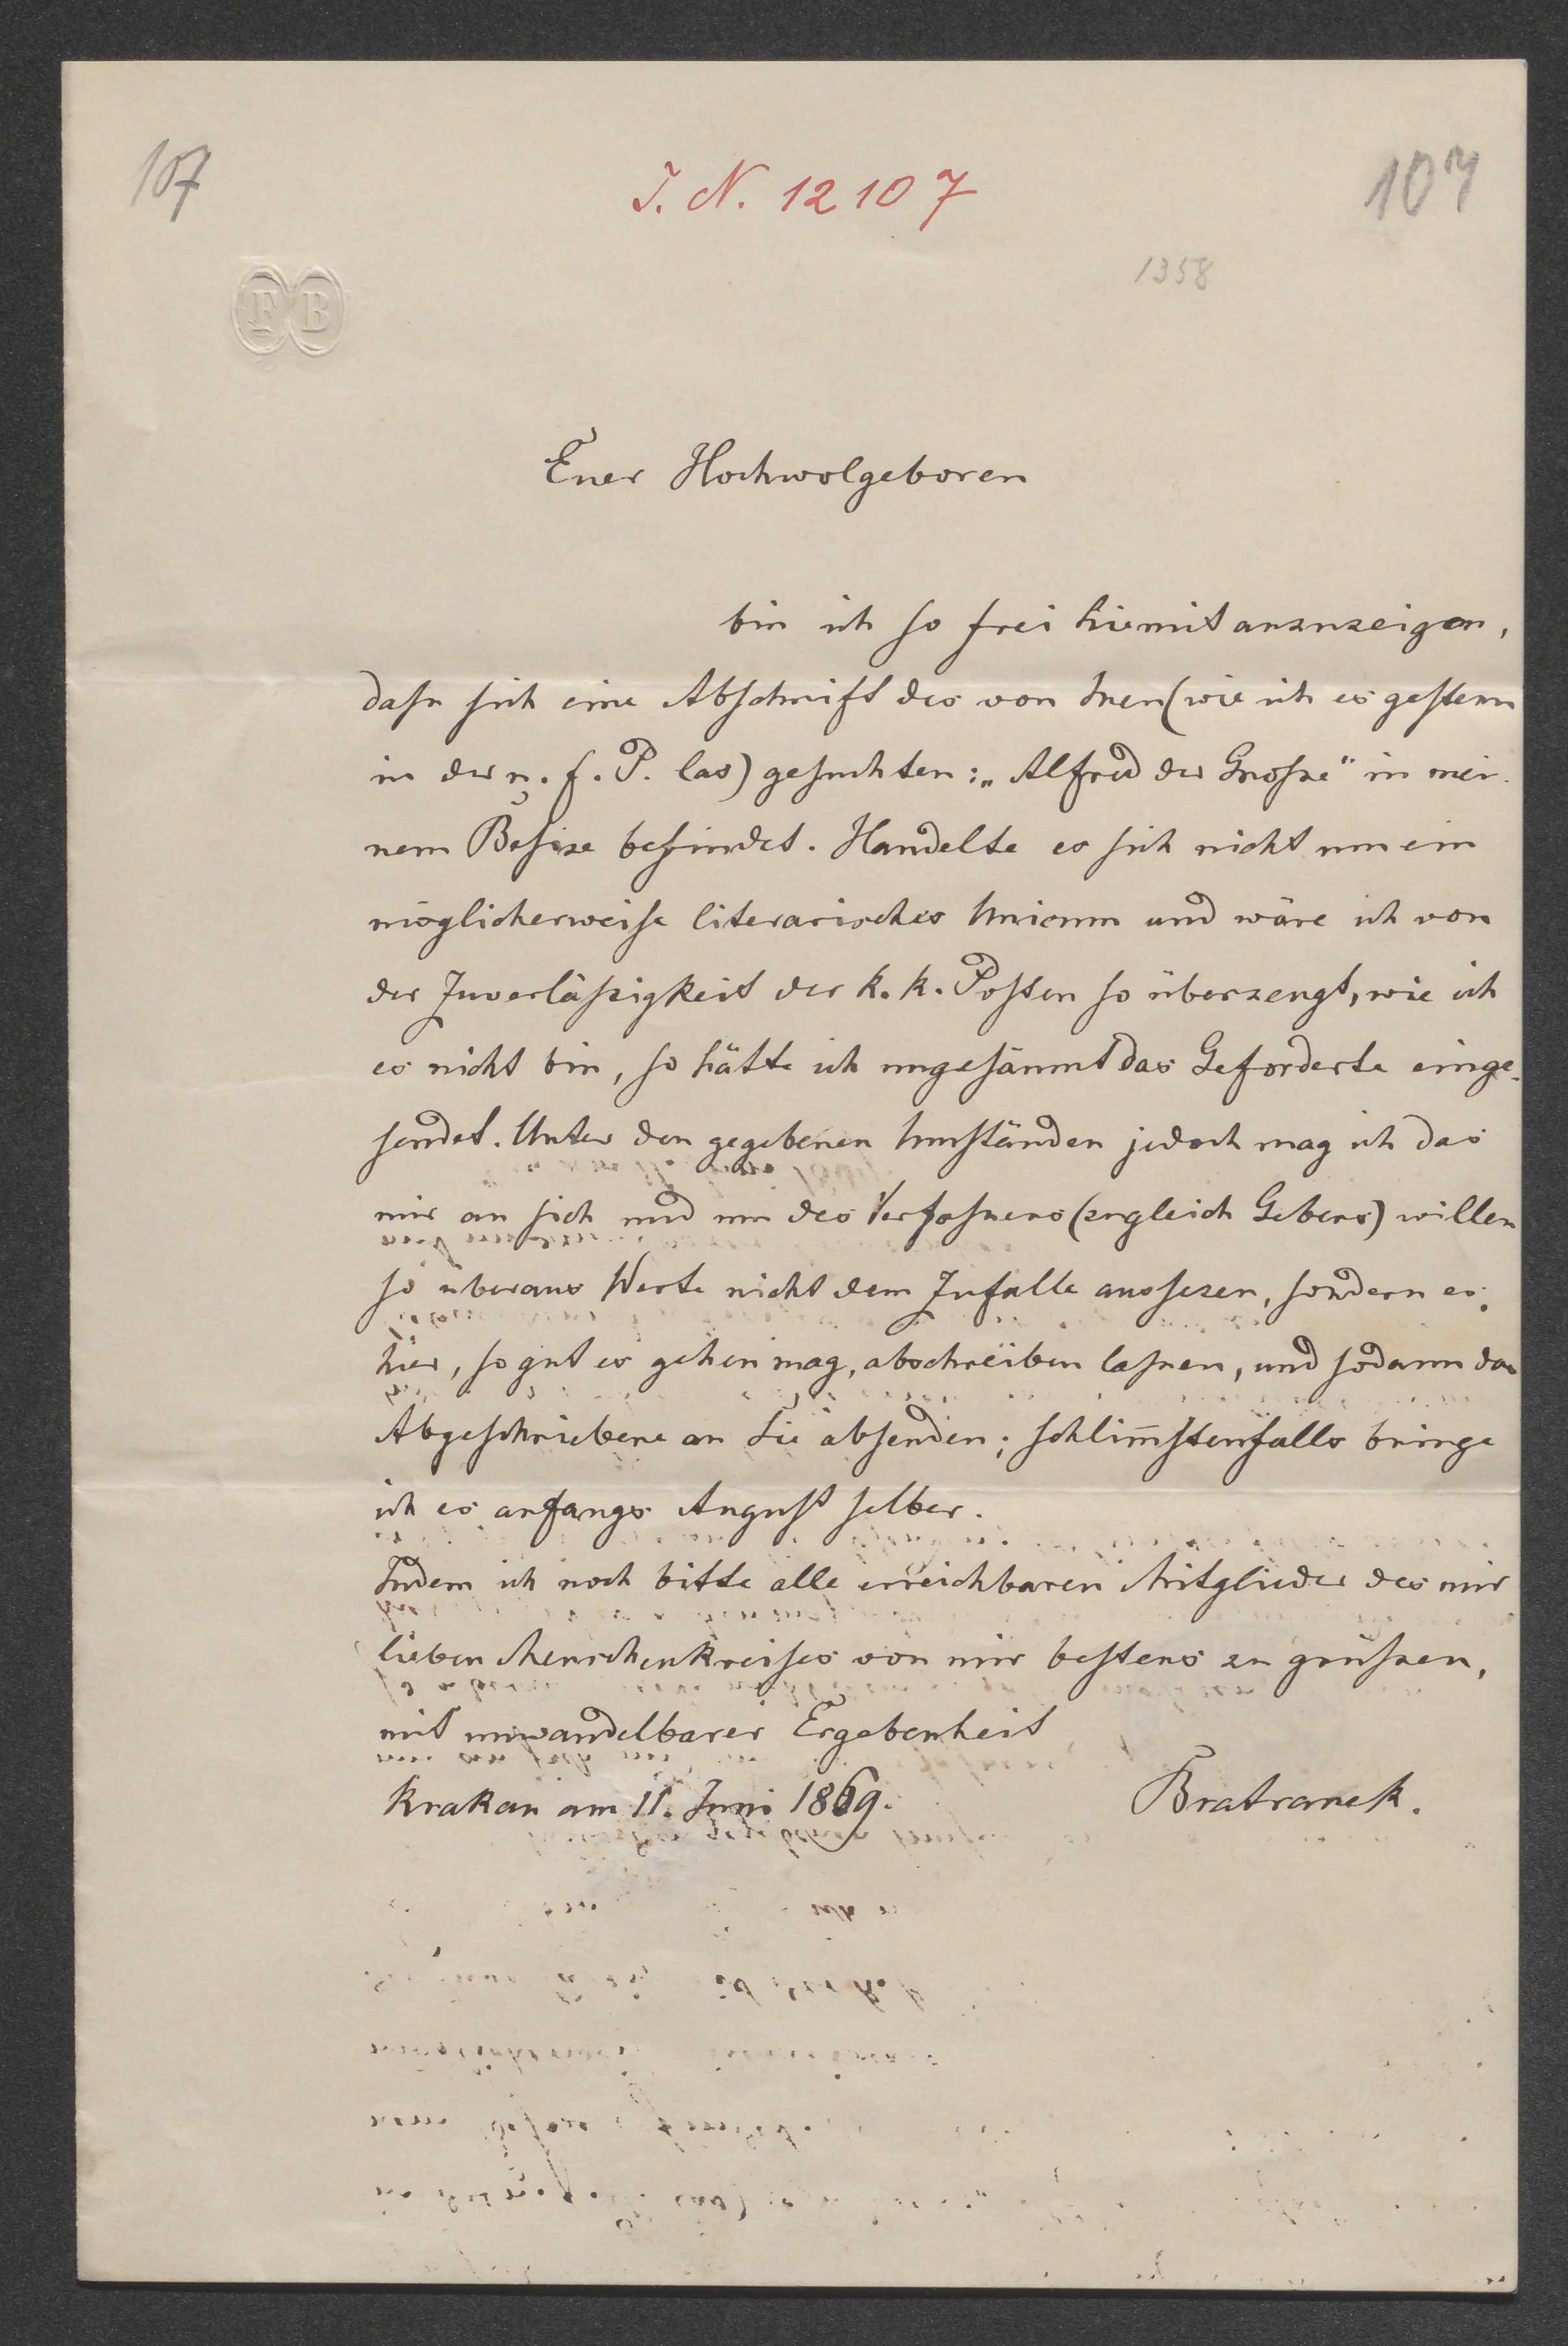 107
I. N. 12107
107
1358
F B
Euer Hochwolgeboren
bin ich so frei hiemit anzuzeigen,
dasz sich eine Abschrift des von Inen (wie ich es gestern
in der n. f. P. las) gesuchten: „Alfred der Grosze" in mei-
nem Besize befindet. Handelte es sich nicht um ein
möglicherweise literarisches Unicum und wäre ich von
der Zuverläszigkeit der k. k. Posten so überzeugt, wie ich
es nicht bin, so hätte ich ungesäumt das Geforderte einge-
sendet. Unter den gegebenen Umständen jedoch mag ich das
mir an sich und um des Verfaszers (zugleich Gebers) willen
so überaus Werte nicht dem Zufalle aussezen, sondern es
hier, so gut es gehen mag, abschreiben laszen, und sodann das
Abgeschriebene an Sie absenden; schlim̅stenfalls bringe
ich es anfangs August selber.
Indem ich noch bitte alle erreichbaren Mitglieder des mir
lieben Menschenkreises von mir bestens zu grüszen,
mit unwandelbarer Ergebenheit
Krakau am 11. Juni 1869.
Bratranek.